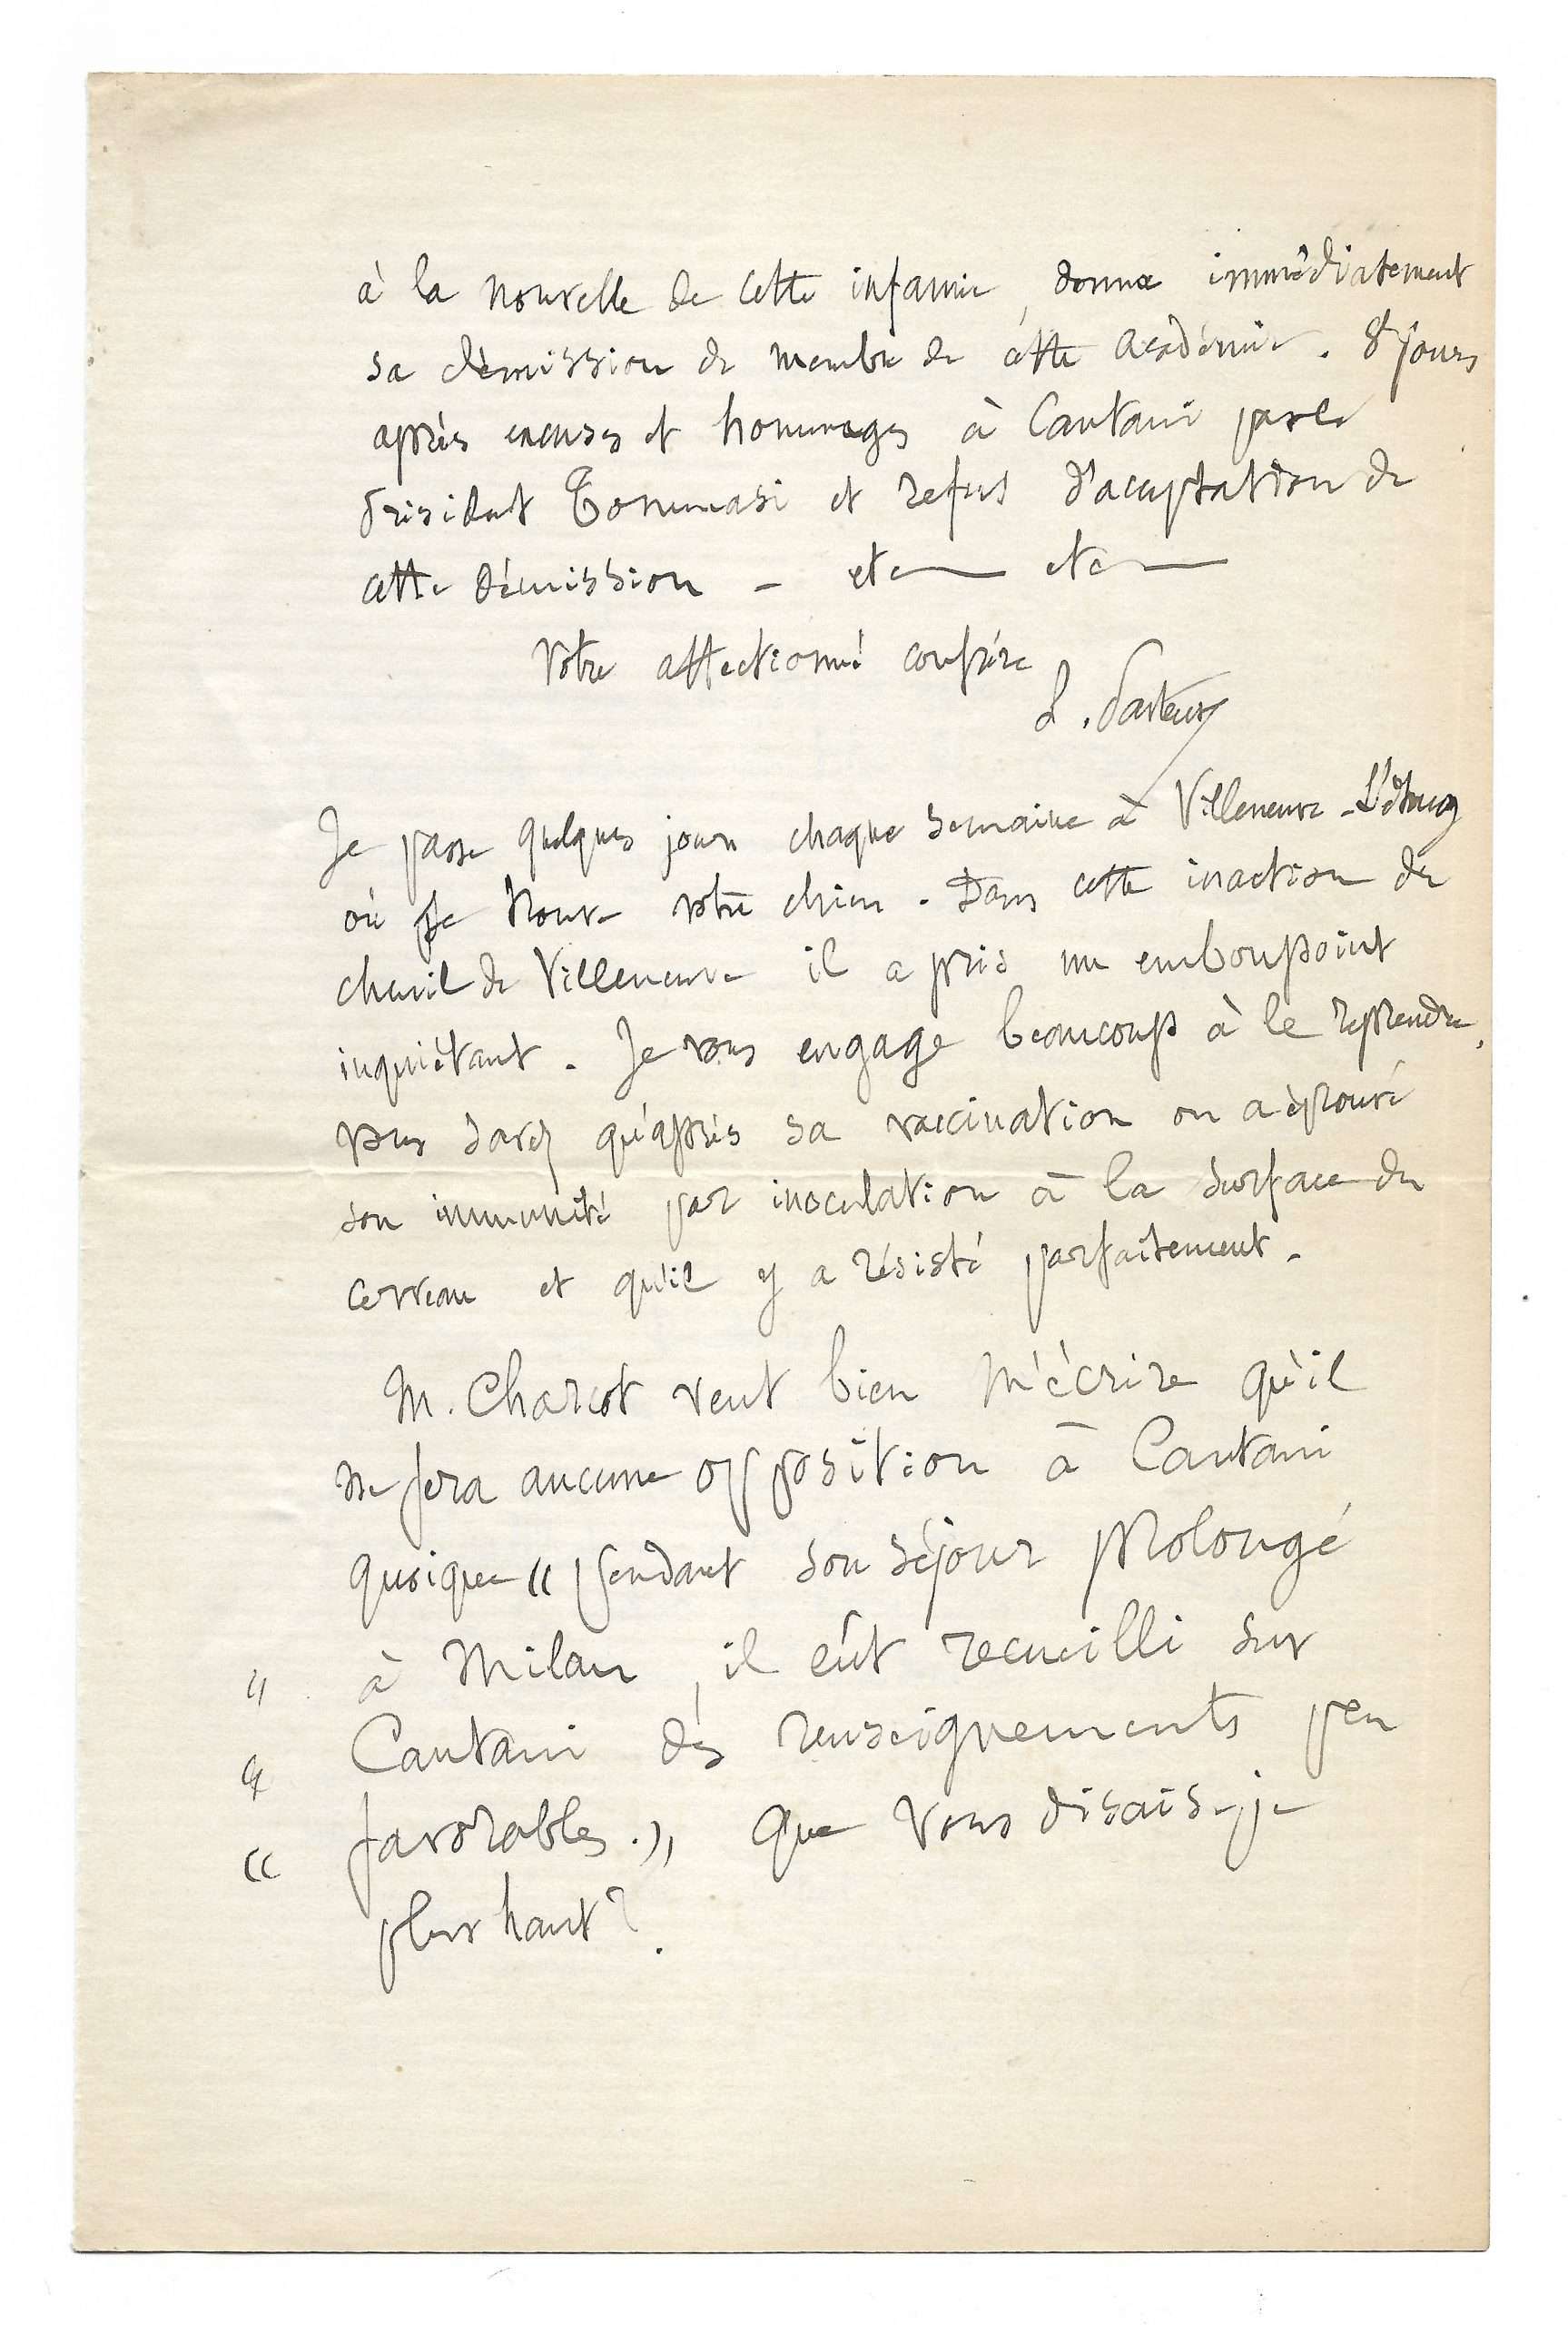 à la nouvelle de cette infamie, donne immédiatement
sa démission de membre de cette académie. 8 jours
après excuses et hommages à Cantani par le
Président Tommasi et refus d'acceptation de
cette démission - etc etc
Votre affectionné confrère
L. Pasteur
Je passe quelques jours chaque semaine à Villeneuve-L'étang
où se trouve votre chien. Dans cette inaction du
chenil de Villeneuve il a pris un embonpoint
inquiétant. Je vous engage beaucoup à le reprendre,
vous savez qu'après sa vaccination on a éprouvé
son immunité par inoculation à la surface du
cerveau et qu'il y a résisté parfaitement.
M. Charcot veut bien m'écrire qu'il
ne fera aucune opposition à Cantani
quoique « pendant son séjour prolongé
" à Milan, il eût recueilli sur
« Cantani des renseignements peu
« favorables.», que vous disais-je
plus haut?